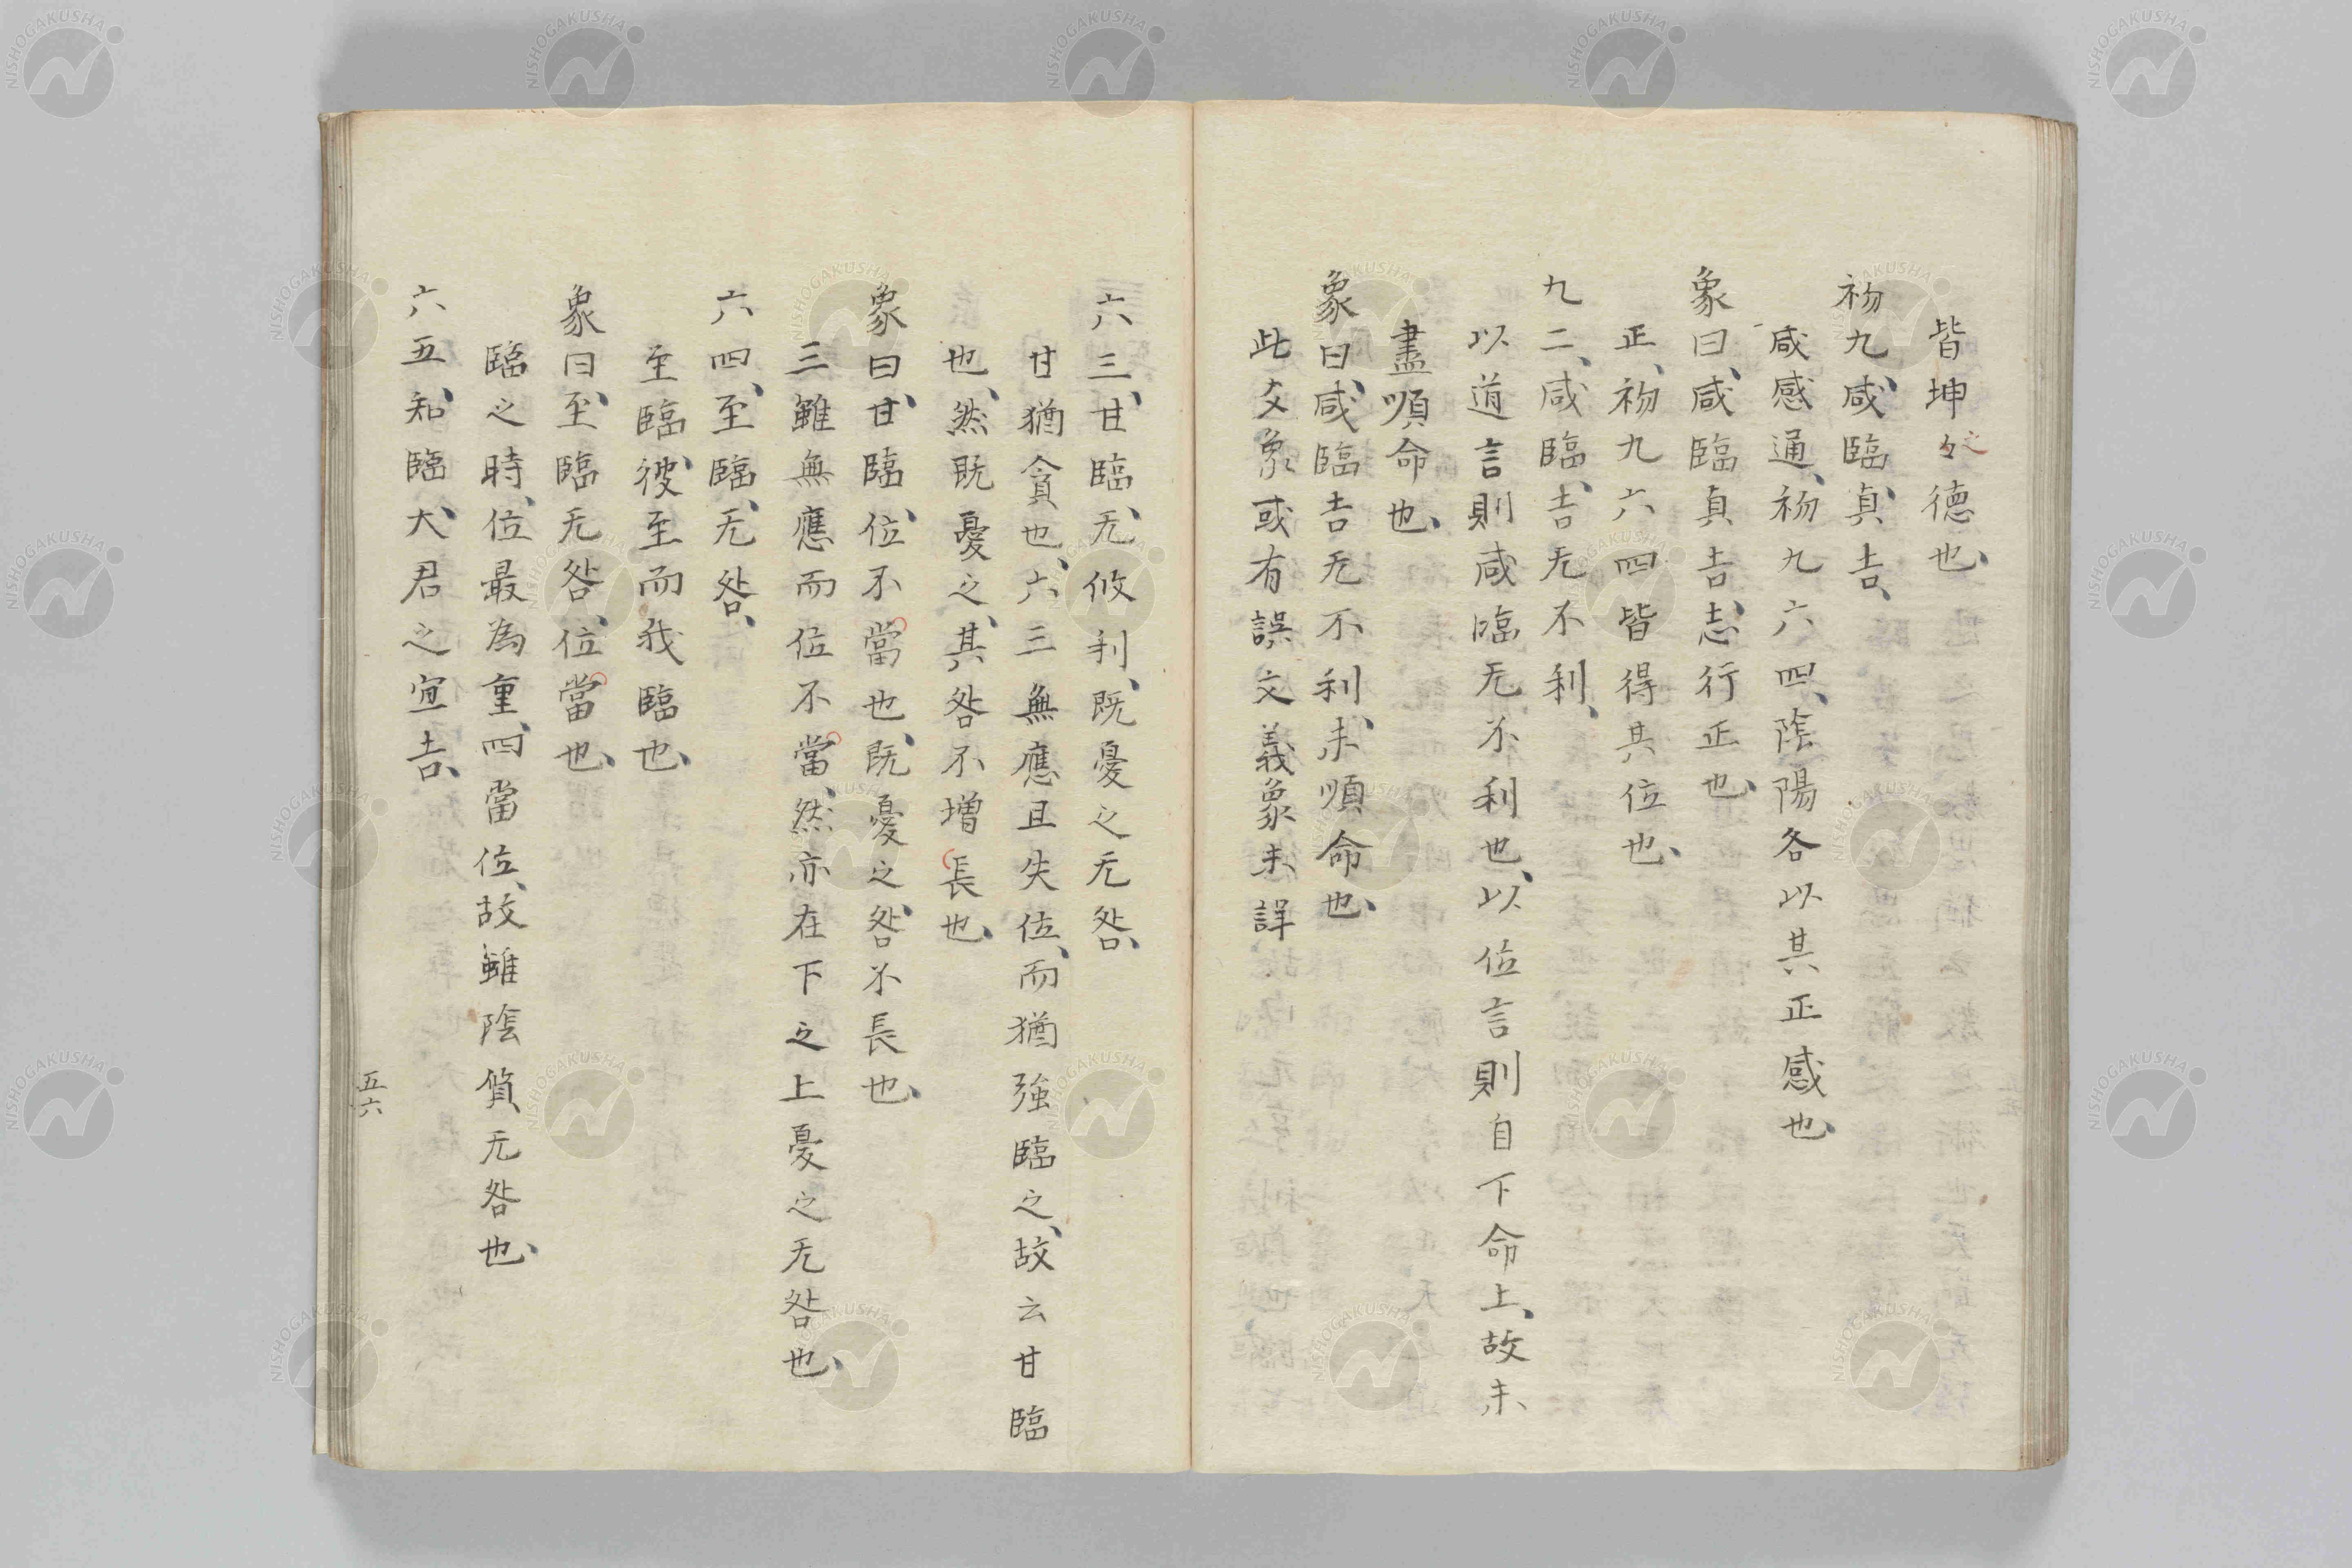 皆坤々之德也、
初九、咸臨、貞吉、
咸感通、初九六四、陰陽各以其正感也、
象曰、咸臨貞吉、志行正也、
正、初九六四皆得其位也、
九二、咸臨、吉、无不利、
以道言則咸臨无不利也、以位言則自下命上、故未
盡順命也、
象曰、咸臨吉无不利、未順命也、
此爻象或有誤文義象未詳
六三、甘臨、无攸利、既憂之无咎、
甘猶貪也、六三無應且失位、而猶強臨之、故云甘臨
也、然既憂之、其咎不增長也、
象曰、甘臨、位不當也、既憂之、咎不長也、
三雖無應而位不當、然亦在下之上憂之无咎也、
六四、至臨、无咎、
至臨、彼至而我臨也、
象曰、至臨无咎、位當也、
臨之時、位最為重、四當位、故雖陰質无咎也、
六五、知臨、大君之宜、吉、
五六
NISHOGAKUSHA